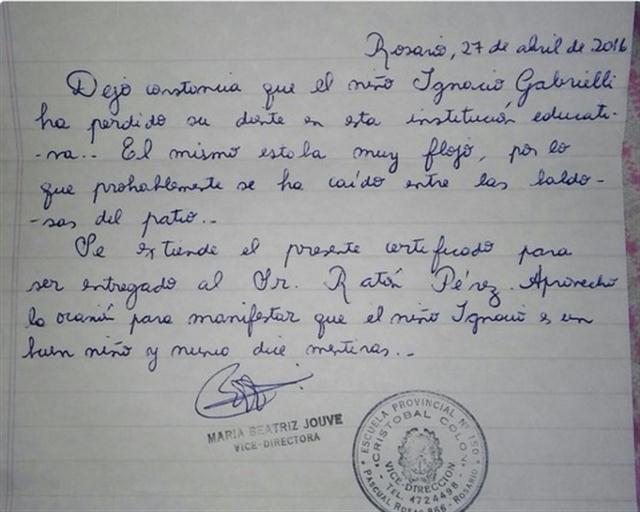 Rosario, 27 de abril de 2016
Dejo constancia que el niño Ignacio Gabrielli
ha perdido su diente en esta institución educati-
-va.. El mismo estaba muy flojo, por lo
que probablemente se ha caído entre las baldo-
-sas del patio..
Se extiende el presente certificado para
ser entregado al Sr. Ratón Pérez. Aprovecho
la ocasión para manifestar que el niño Ignacio es un
buen niño y nunca dice mentiras..
MARIA BEATRIZ JOUVE
VICE-DIRECTORA
ESCUELA PROVINCIAL Nº 150
"CRISTOBAL COLON"
VICE-DIRECCION
TEL. 4724498
PASCUAL ROSAS 866 - ROSARIO